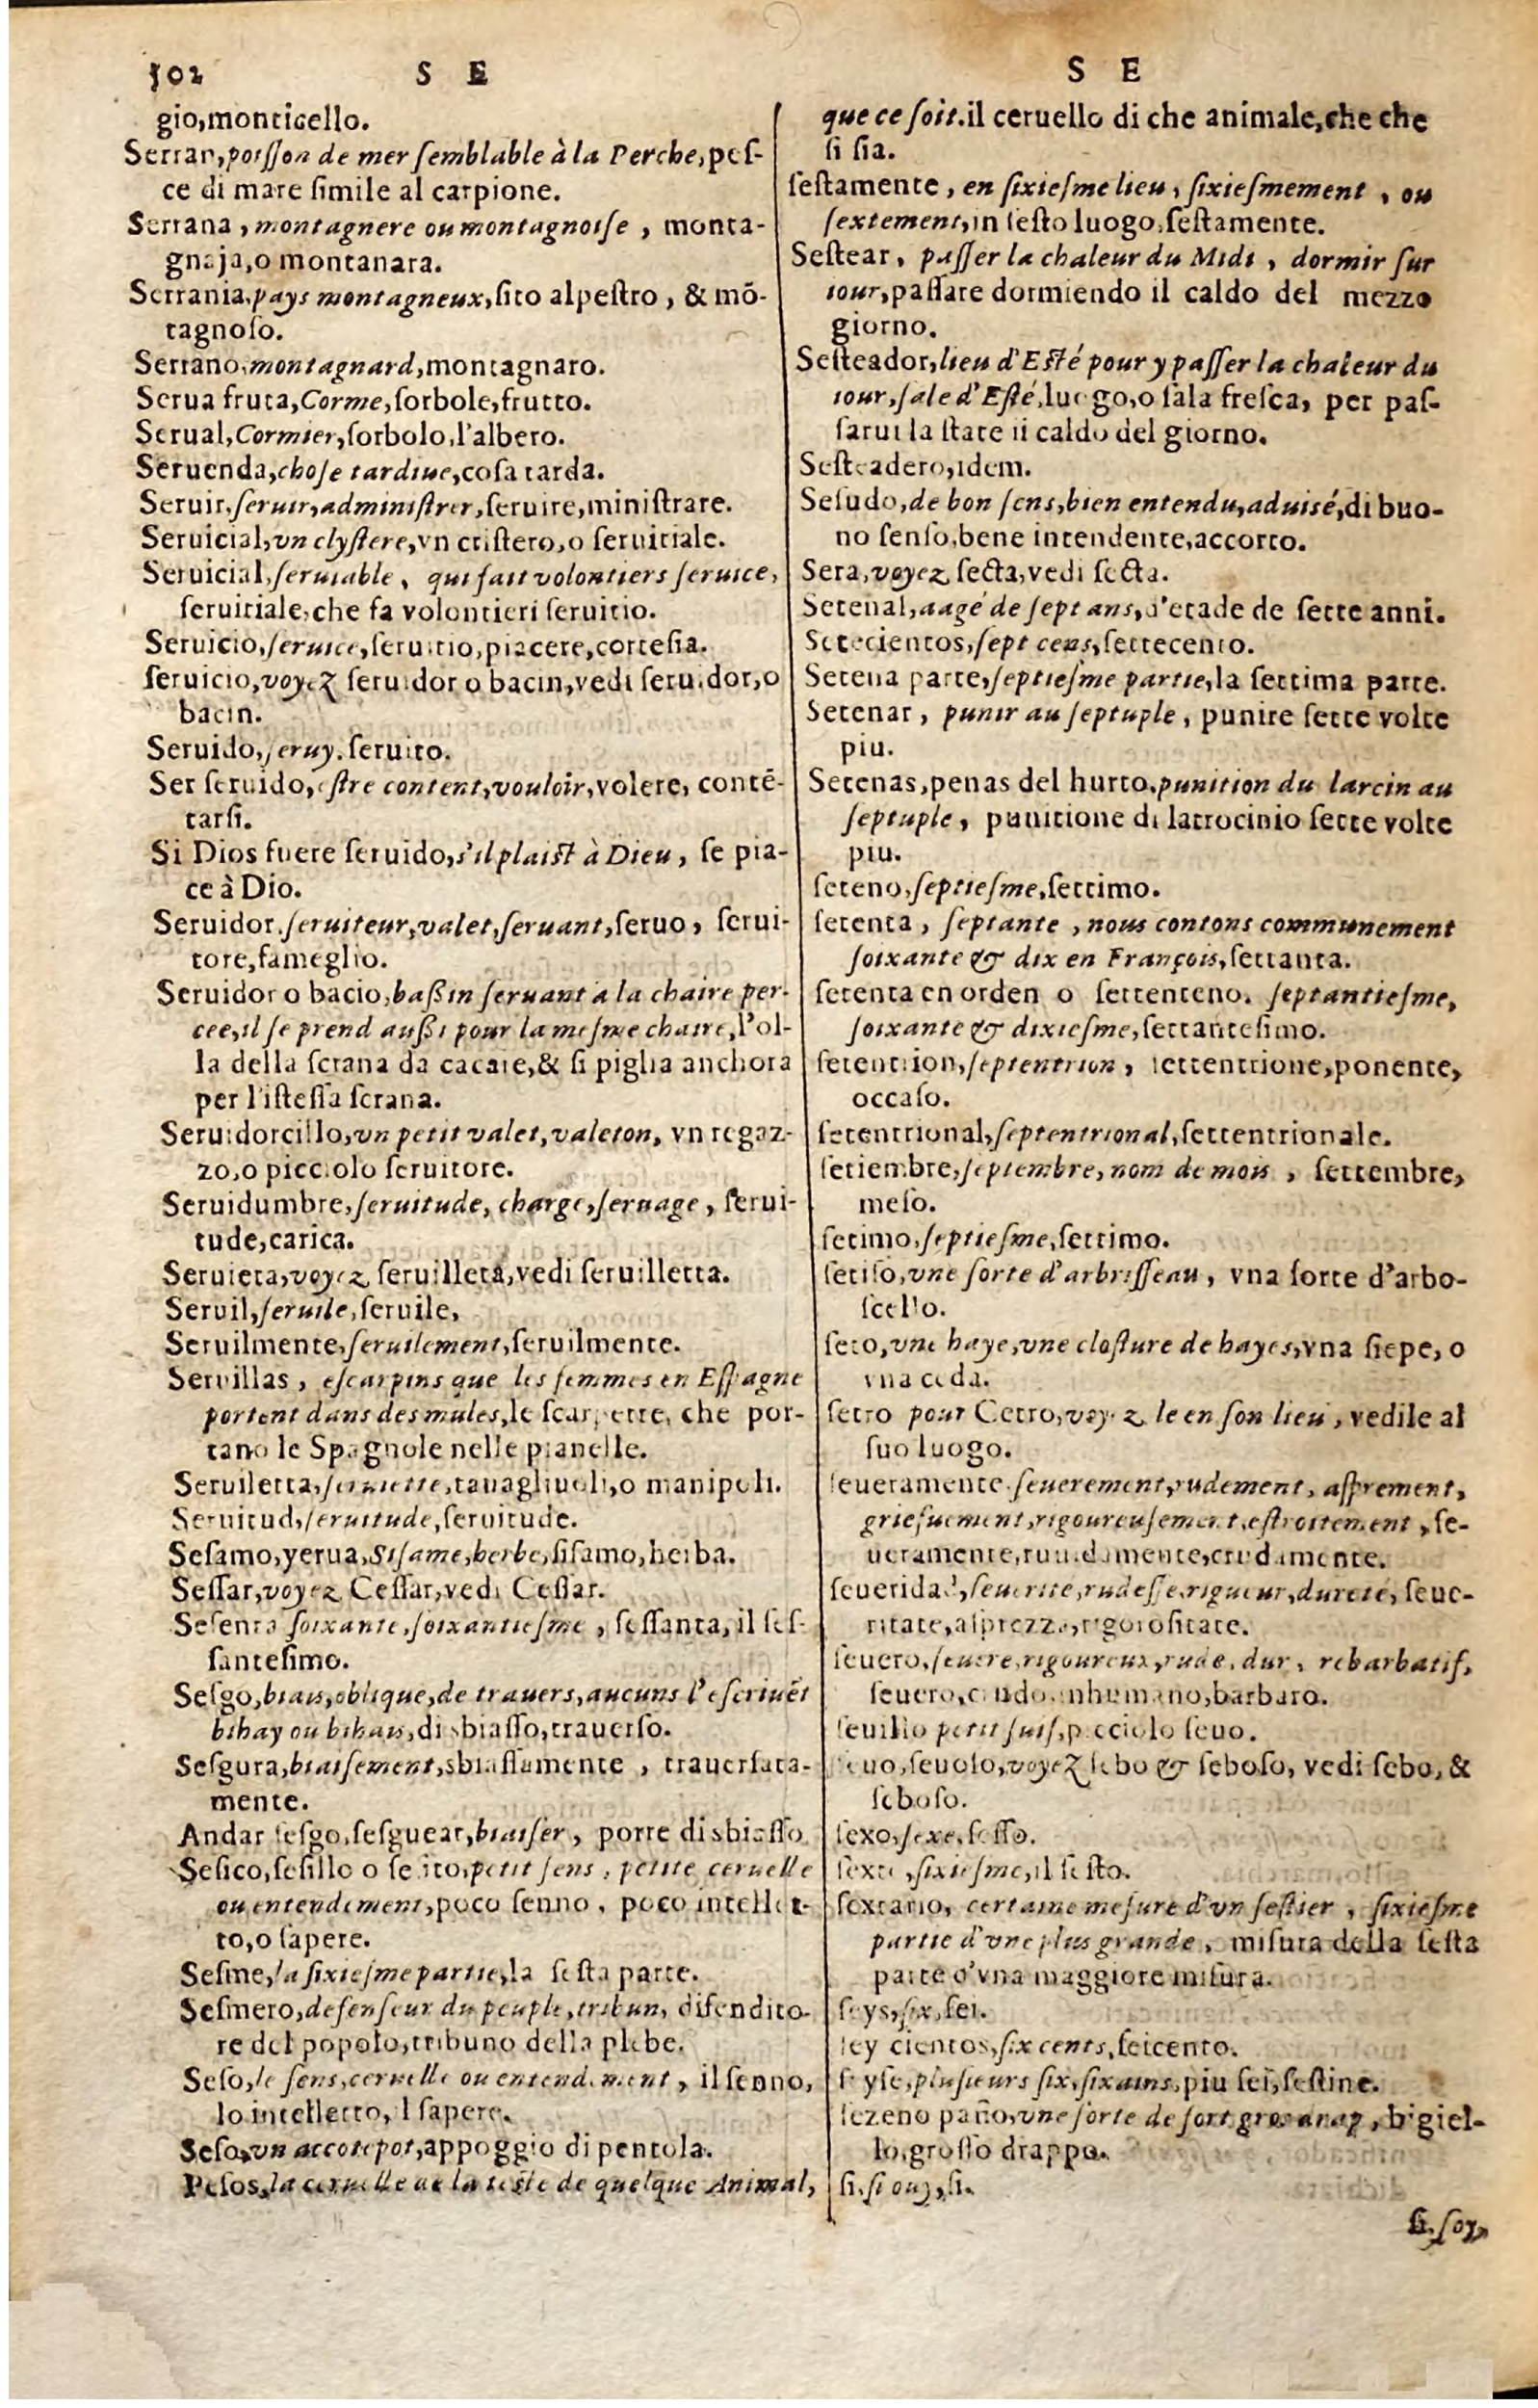 502 S E
gio,monticello.
Serran,poiſſon de mer ſemblable à la Perche,peſ-
ce di mare ſimile al carpione.
Serrana, montagnere ou montagnoiſe, monta-
gnaja,o montanara.
Serrania,pays montagneux,ſito alpeſtro, & mõ-
tagnoſo.
Serrano,montagnard,montagnaro.
Serua fruta,Corme,ſorbole,frutto.
Serual,Cormier,ſorbolo,l'albero.
Seruenda,choſe tardiue,coſa tarda.
Seruir,ſeruir,adminiſtrer,ſeruire,miniſtrare.
Seruicial,vn clyſtere,vn criſtero,o ſeruitiale.
Seruicial,ſeruiable, qui fait volontiers ſeruice,
ſeruitiale,che fa volontieri ſeruitio.
Seruicio,ſeruice,ſeruitio,piacere,corteſia.
ſeruicio,voyez ſeruidor o bacin,vedi ſeruidor,o
bacin.
Seruido,ſeruy.ſeruito.
Ser ſeruido,eſtre content,vouloir,volere, contẽ-
tarſi.
Si Dios fuere ſeruido,s'il plaiſt à Dieu, ſe pia-
ce à Dio.
Seruidor.ſeruiteur,valet,ſeruant,ſeruo, ſerui-
tore,fameglio.
Seruidor o bacio,baßin ſeruant a la chaire per-
cee,il ſe prend außi pour la meſme chaire,l'ol-
la della ſcrana da cacare,& ſi piglia anchora
per l'iſteſſa ſcrana.
Seruidorcillo,vn petit valet,valeton, vn regaz-
zo,o picciolo ſeruitore.
Seruidumbre,ſeruitude, charge,ſeruage, ſerui-
tude,carica.
Seruieta,voyez ſeruilleta,vedi ſeruilletta.
Seruil,ſeruile,ſeruile,
Seruilmente,ſeruilement,ſeruilmente.
Seruillas, eſcarpins que les femmes en Eſpagne
portent dans des mules,le ſcarpette, che por-
tano le Spagnole nelle pianelle.
Seruiletta,ſeruiette,tauagliuoli,o manipoli.
Seruitud,ſeruitude,ſeruitude.
Seſamo,yerua,Siſame,herbe,ſiſamo,herba.
Seſſar,voyez Ceſſar,vedi Ceſſar.
Seſenta ſoixante,ſoixantieſme, ſeſſanta, il ſeſ-
ſanteſimo.
Seſgo,biais,oblique,de trauers,aucuns l'eſcriuẽt
bihay ou bihais,di sbiaſſo,trauerſo.
Seſgura,biaiſement,sbiaſſamente, trauerſata-
mente.
Andar ſeſgo,ſeſguear,biaiſer, porre di sbiaſſo
Seſico,ſeſillo o ſeſito,petit ſens, petite ceruelle
ou entendement,poco ſenno, poco intellet-
to,o ſapere.
Seſme,la ſixieſme partie,la ſeſta parte.
Seſmero,defenſeur du peuple,tribun, difendito-
re del popolo,tribuno della plebe.
Seſo,le ſens,ceruelle ou entendement, il ſenno,
lo intelletto,il ſapere.
Seſo,vn accotepot,appoggio di pentola.
Peſos,la ceruelle de la teſte de quelque Animal,
S E
que ce ſoit.il ceruello di che animale,che che
ſi ſia.
ſeſtamente, en ſixieſme lieu, ſixieſmement, ou
ſextement,in ſeſto luogo,ſeſtamente.
Seſtear, paſſer la chaleur du Midi, dormir ſur
iour,paſſare dormiendo il caldo del mezzo
giorno.
Seſteador,lieu d'Eſté pour y paſſer la chaleur du
iour,ſale d'Eſté,luogo,o ſala freſca, per paſ-
ſarui la ſtate il caldo del giorno.
Seſteadero,idem.
Seſudo,de bon ſens,bien entendu,aduisé,di buo-
no ſenſo,bene intendente,accorto.
Seta,voyez ſecta,vedi ſecta.
Setenal,aagé de ſept ans,d'etade de ſette anni.
Setecientos,ſept cens,ſettecento.
Setena parte,ſeptieſme partie,la ſettima parte.
Setenar, punir au ſeptuple, punire ſette volte
piu.
Setenas,penas del hurto.punition du larcin au
ſeptuple, punitione di latrocinio ſette volte
piu.
ſeteno,ſeptieſme,ſettimo.
ſetenta, ſeptante, nous contons communement
ſoixante & dix en François,ſettanta.
ſetenta en orden o ſettenteno. ſeptantieſme,
ſoixante & dixieſme,ſettanteſimo.
ſetentrion,ſeptentrion, ſettentrione,ponente,
occaſo.
ſetentrional,ſeptentrional,ſettentrionale.
ſetiembre,ſeptembre,nom de mois, ſettembre,
meſo.
ſetimo,ſeptieſme,ſettimo.
ſetiſo,vne ſorte d'arbriſſeau, vna ſorte d'arbo-
ſcello.
ſeto,vne haye,vne cloſture de hayes,vna ſiepe, o
vna ceda.
ſetro pour Cetro,voyez le en ſon lieu, vedile al
ſuo luogo.
ſeueramente.ſeuerement,rudement, aſprement,
griefuement,rigoureuſement,eſtroitement, ſe-
ueramente,ruuidamente,crudamente.
ſeueridad,ſeuerite,rudeſſe,rigueur,dureté, ſeue-
ritate,aſprezza,rigoroſitate.
ſeuero,ſeuere,rigoureux,rude, dur, rebarbatif,
ſeuero,crudo,inhumano,barbaro.
ſeuillo petit ſuif,picciolo ſeuo.
ſeuo,ſeuoſo,voyez ſebo & ſeboſo, vedi ſebo, &
ſeboſo.
ſexo,ſexe,ſeſſo.
ſexto,ſixieſme,il ſeſto.
ſextario, certaine meſure d'vn ſeſtier, ſixieſme
partie d'vne plus grande, miſura della ſeſta
parte d'vna maggiore miſura.
ſeys,ſix,ſei.
ſey cientos,ſix cents,ſeicento.
ſeyſe,pluſieurs ſix,ſixains,piu ſei,ſeſtine.
ſezeno paño,vne ſorte de fort gros drap, bigiel-
lo,groſſo drappo.
ſi.ſi ouy,ſi.
ſi.ſoy,